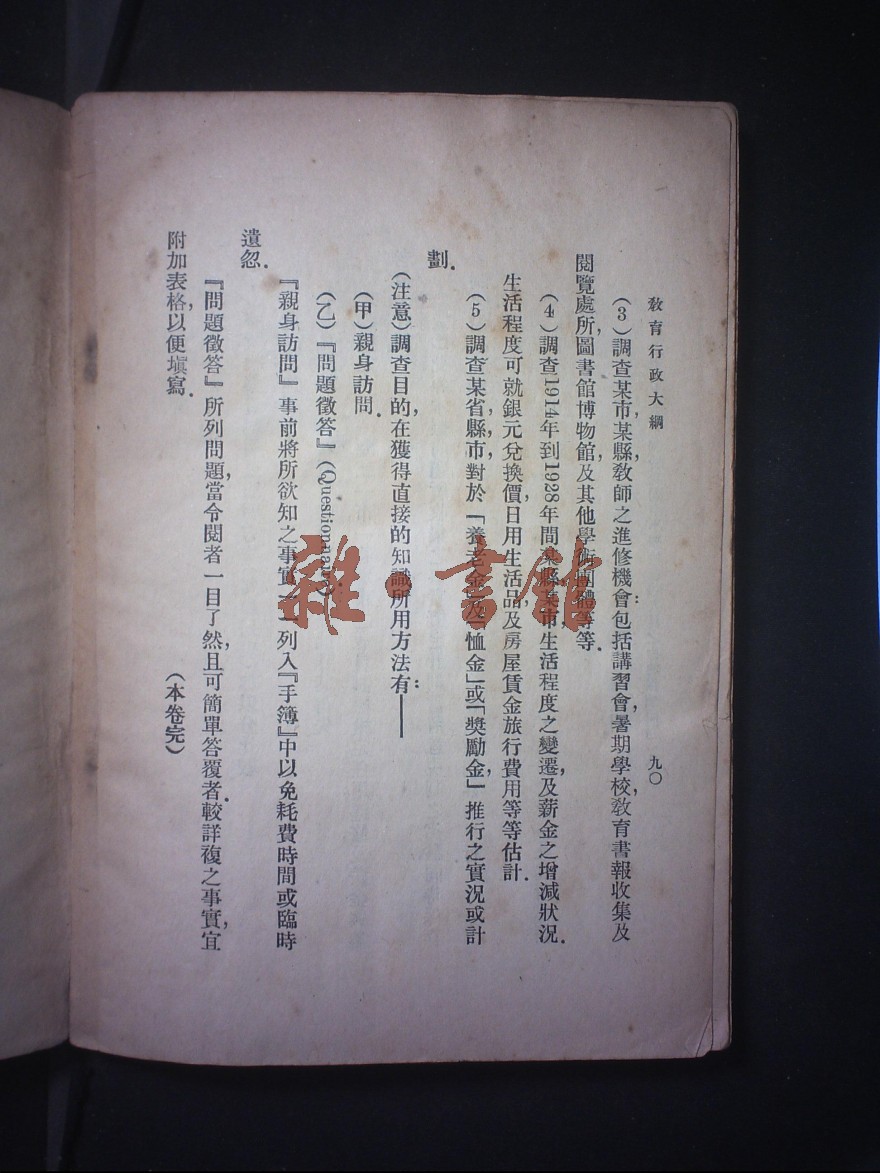 教育行政大綱
九〇
(3)調查某市,某縣,教師之進修機會:包括講習會,暑期學校,教育書報收集及
閱覽處所,圖書館博物館,及其他學術團體等等.
(4)調查1914年到1928年間某縣某市生活程度之變遷,及薪金之增減狀況.
生活程度可就銀元兌換價,日用生活品,及房屋賃金旅行費用等等估計.
(5)調查某省,縣,市,對於「養老金及恤金」或「獎勵金,」推行之實況或計
劃.
(注意)調查目的,在獲得直接的知識所用方法有:——
(甲)親身訪問.
(乙)『問題徵答』(Questionnaire)
『親身訪問』事前將所欲知之事實一一列入『手簿』中以免耗費時間或臨時
遺忽.
『問題徵答』所列問題,當令閱者一目了然,且可簡單答覆者.較詳複之事實,宜
附加表格,以便填寫.
(本卷完)
雜·書館